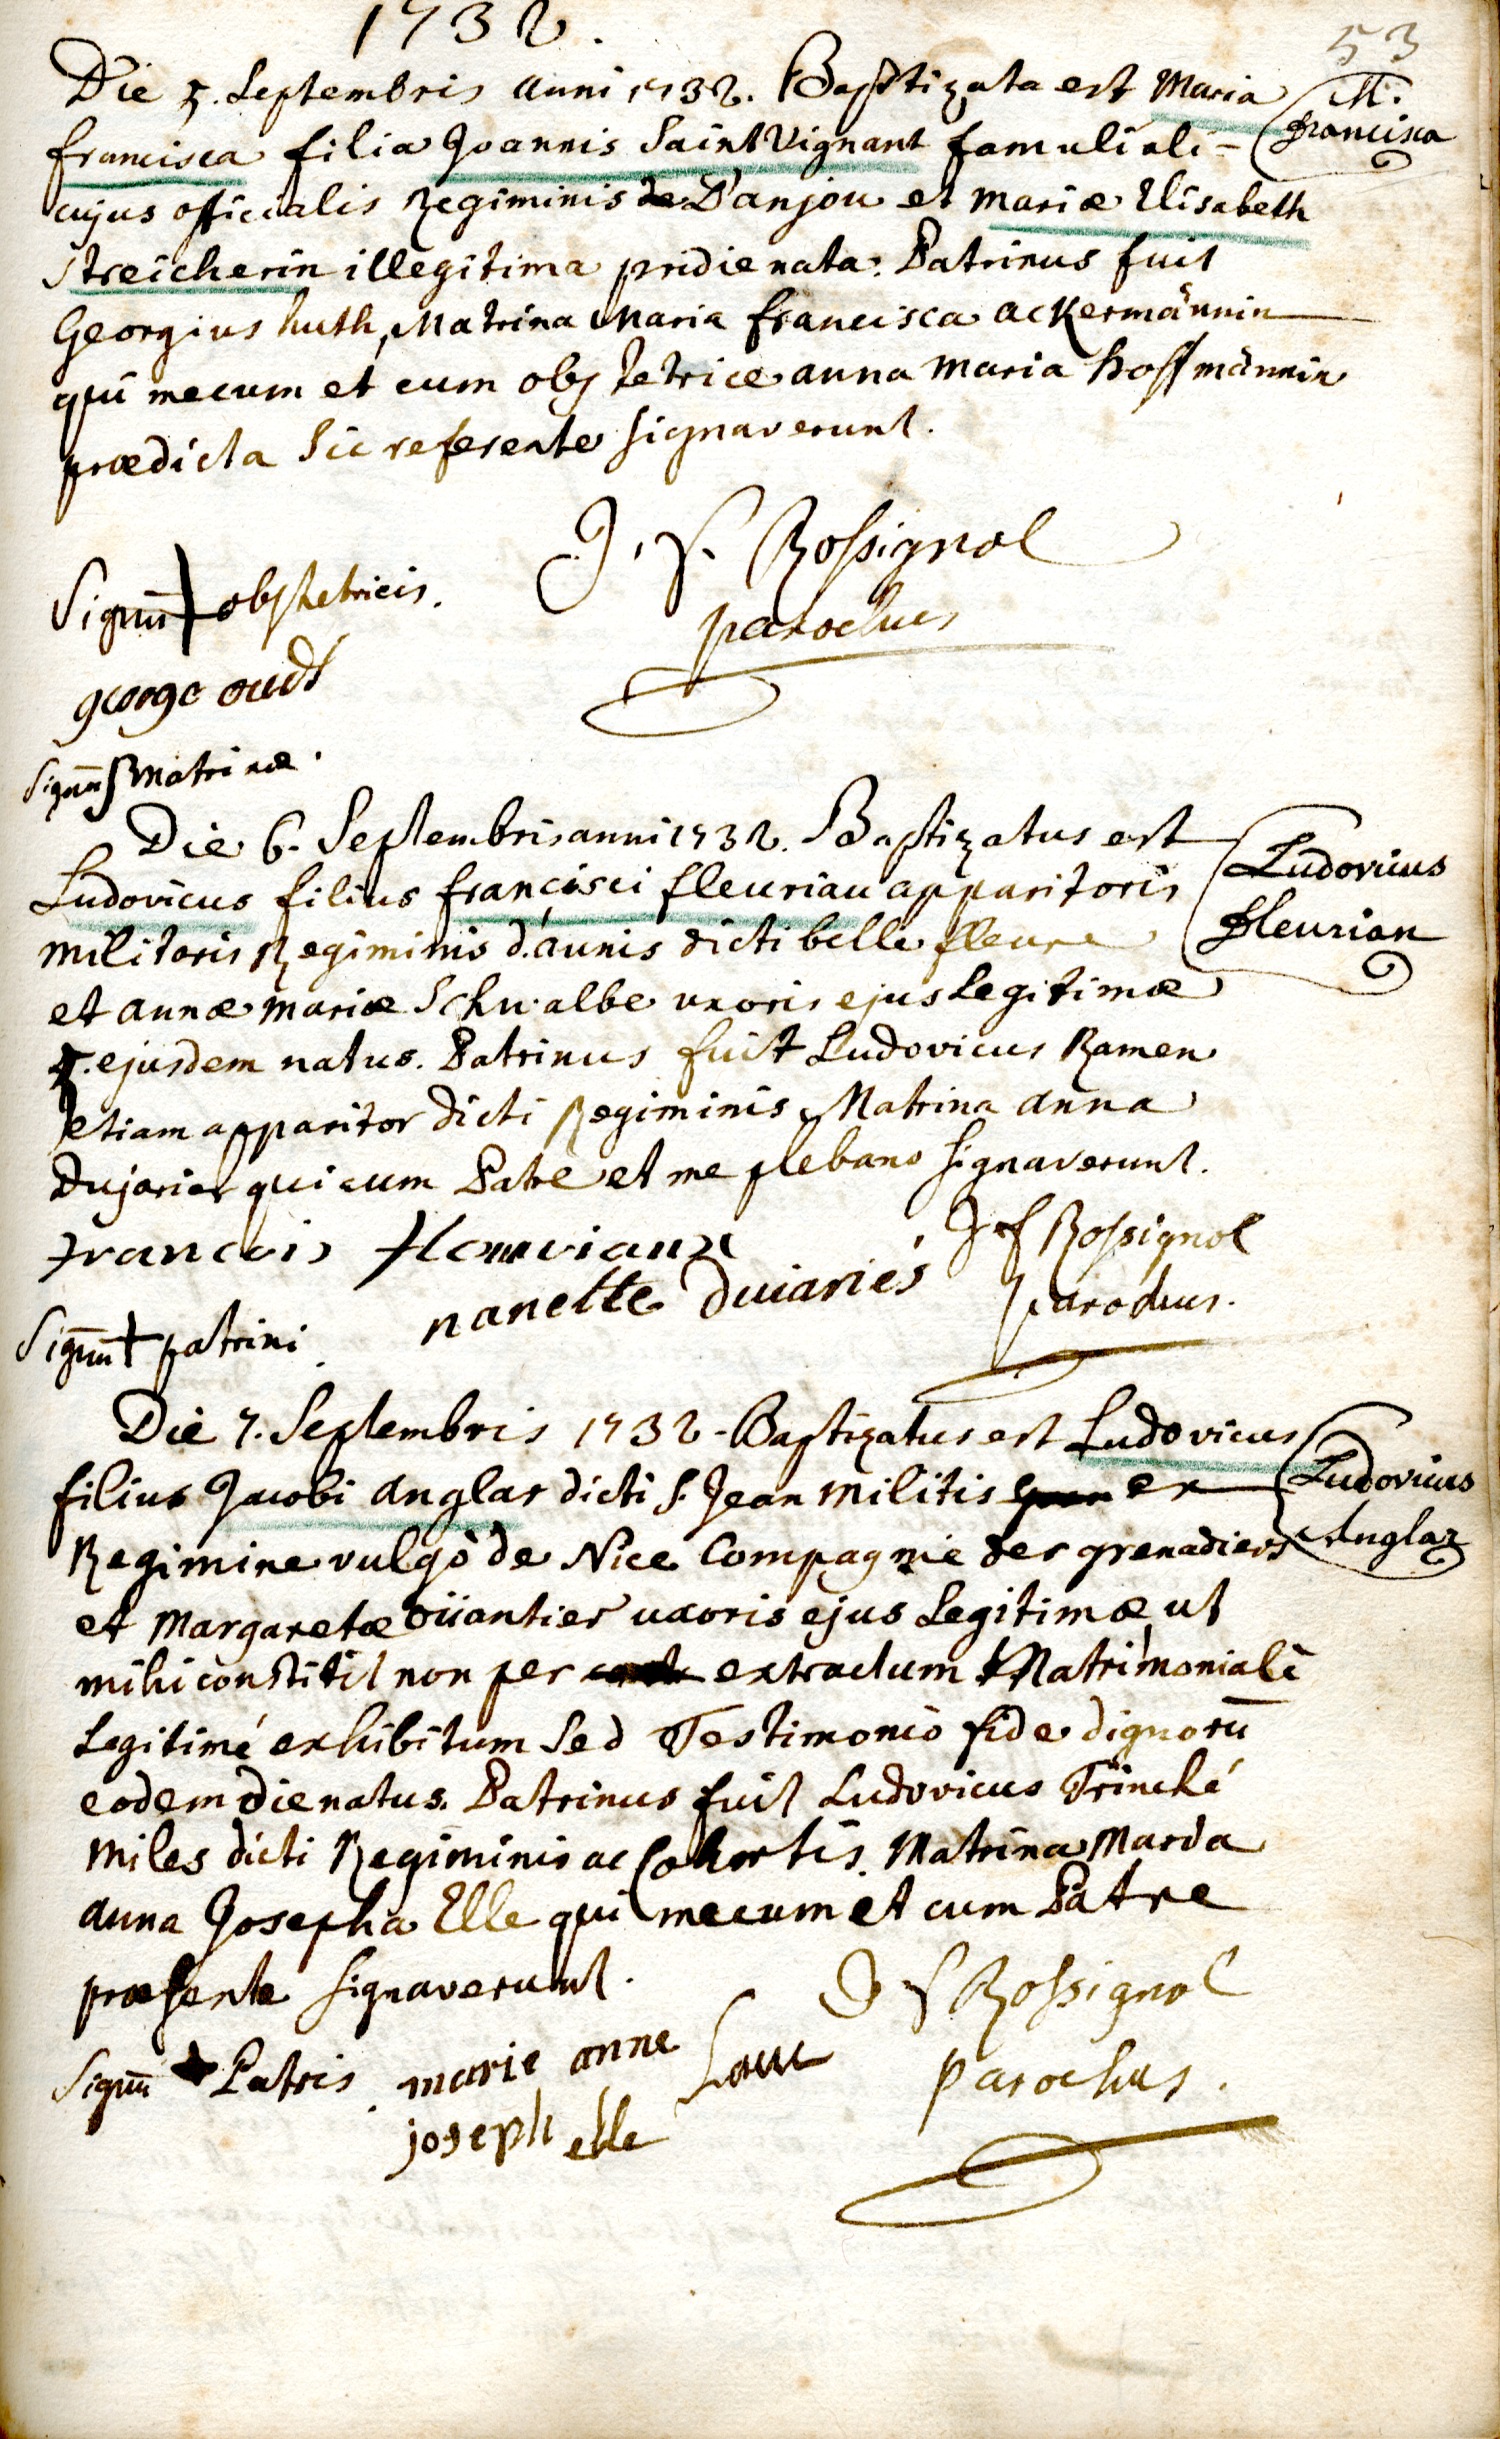 1732.
53
Die 5. Septembris anni 1732. Baptizata est Maria
M.
francisca
francisca filia Joannis Saint Vignant famuli ali-
cujus officialis Regiminis de D'anjou et Mariæ Elisabeth
Streicherin illegitima pridie nata. Patrinus fuit
Georgius huth, Matrina Maria francisca ackermännin
qui mecum et cum obstetrice anna Maria hoffmännin
prædicta sic referente signaverunt.
J. f. Rossignol
parochus
Signū + obstetricis.
george oudt
Signū Matrinæ.
Die 6. Septembris anni 1732. Baptizatus est
Ludovicus
fleurian
Ludovicus filius francisci fleuriau apparitoris
militaris Regiminis d'aunis dicti belle fleure
et annæ Mariæ Schwalbe uxoris ejus Legitimæ
5. ejusdem natus. Patrinus fuit Ludovicus Ramen
etiam apparitor dicti Regiminis, Matrina anna
Dujarier qui cum Patre et me plebano signaverunt.
francois
J f Rossignol
parochus.
nanette duiaries
Signū + patrini
Die 7. Septembris 1732. Baptizatus est Ludovicus
Ludovicus
Anglar
filius Jacobi Anglar dicti S. Jean Militis ex
Regimine vulgò de Nice Compagnie des grenadiers
et Margaretæ oüantier uxoris ejus Legitimæ, ut
mihi constitit non per extractum Matrimoniale
Legitimé exhibitum sed Testimonio fide dignorū
eodem die natus. Patrinus fuit Ludovicus Trinché
Miles dicti Regiminis ac Cohortis. Matrina Maria
anna Josepha Elle qui mecum et cum Patre
præsente signaverunt.
J f Rossignol
parochus.
Signū + Patris. marie anne
joseph elle